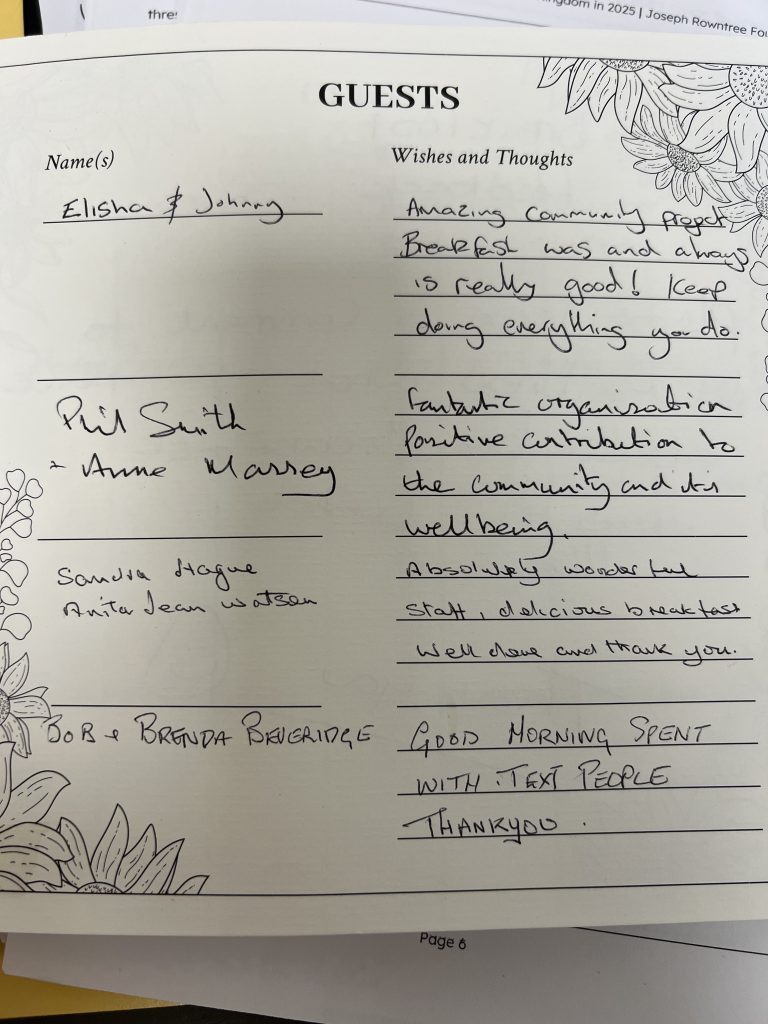 thres
gdom in 2025 | Joseph Rowntree Fou
GUESTS
Name(s)
Wishes and Thoughts
Elisha & Johnny
Amazing community project
Breakfast was and always
is really good! Keep
doing everything you do.
Phil Smith
+ Anne Massey
Fantastic organisation
Positive contribution to
the community and its
wellbeing.
Sandra Hague
Anita Jean Watson
Absolutely wonderful
staff, delicious breakfast
Well done and thank you.
BOB + BRENDA BEVERIDGE
GOOD MORNING SPENT
WITH TEXT PEOPLE
THANKYOU.
Page 6